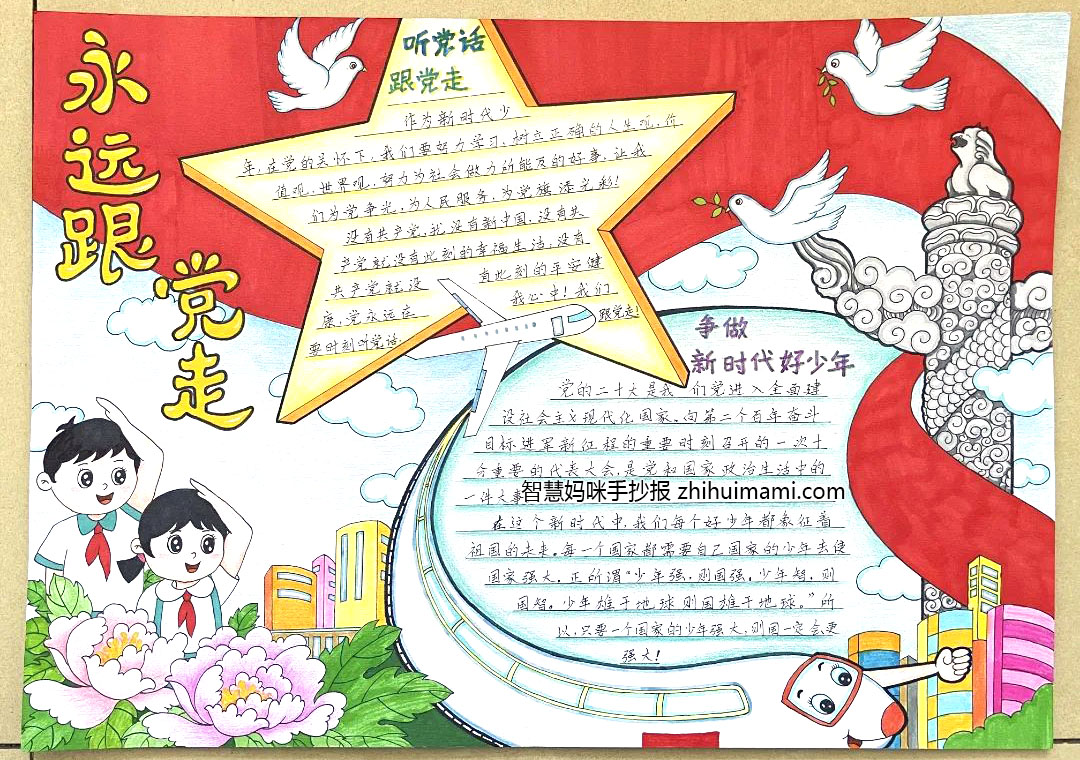 永远跟党走
听党话
跟党走
作为新时代少
年,在党的关怀下,我们要努力学习,树立正确的人生观,价
值观,世界观,努力为社会做力所能及的好事,让我
们为党争光,为人民服务,为党旗添光彩!
没有共产党,就没有新中国,没有共
产党就没有此刻的幸福生活,没有
共产党就没有此刻的平安健
康,党永远在我心中!我们
要时刻听党话,跟党走!
争做
新时代好少年
党的二十大是我们党进入全面建
设社会主义现代化国家、向第二个百年奋斗
目标进军新征程的重要时刻召开的一次十
分重要的代表大会,是党和国家政治生活中的
一件大事
智慧妈咪手抄报 zhihuimami.com
在这个新时代中,我们每个好少年都象征着
祖国的未来。每一个国家都需要自己国家的少年去使
国家强大。正所谓"少年强,则国强。少年智,则
国智。少年雄于地球则国雄于地球。"所
以,只要一个国家的少年强大,则国一定会更
强大!